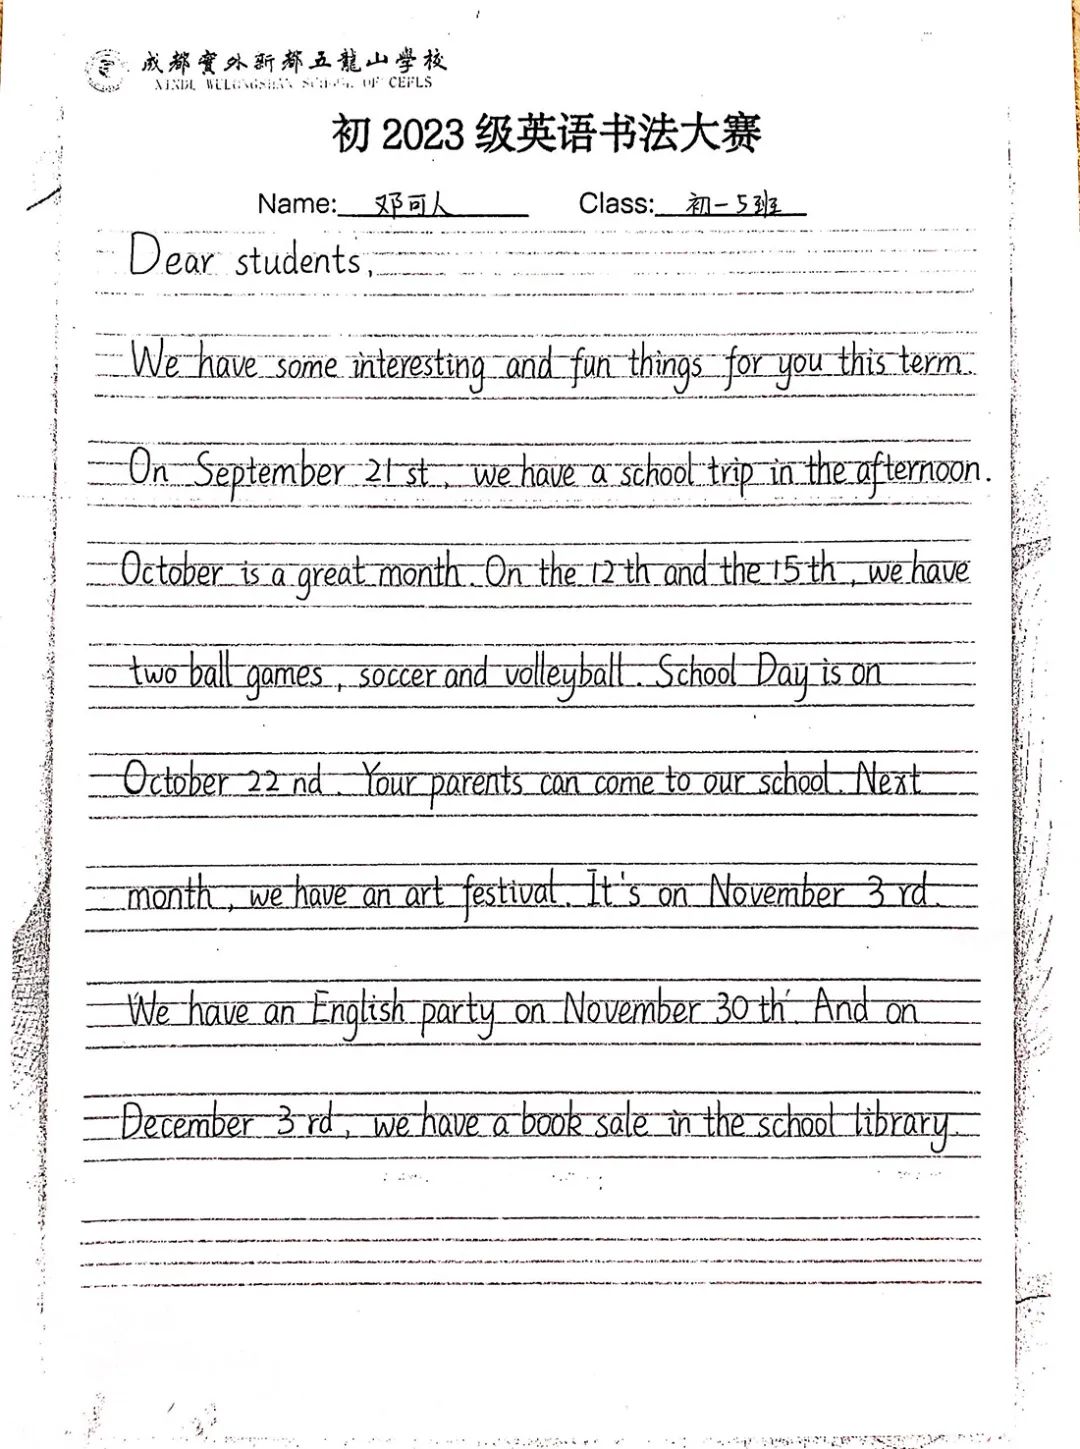 成都實外新都五龍山學校
XINDU WULONGSHAN SCHOOL OF CEFLS
初 2023 级英语书法大赛
Name: 邓可人 Class: 初一5班
Dear students,
We have some interesting and fun things for you this term.
On September 21 st, we have a school trip in the afternoon.
October is a great month. On the 12 th and the 15 th, we have
two ball games, soccer and volleyball. School Day is on
October 22 nd. Your parents can come to our school. Next
month, we have an art festival. It's on November 3 rd.
We have an English party on November 30 th. And on
December 3 rd, we have a book sale in the school library.